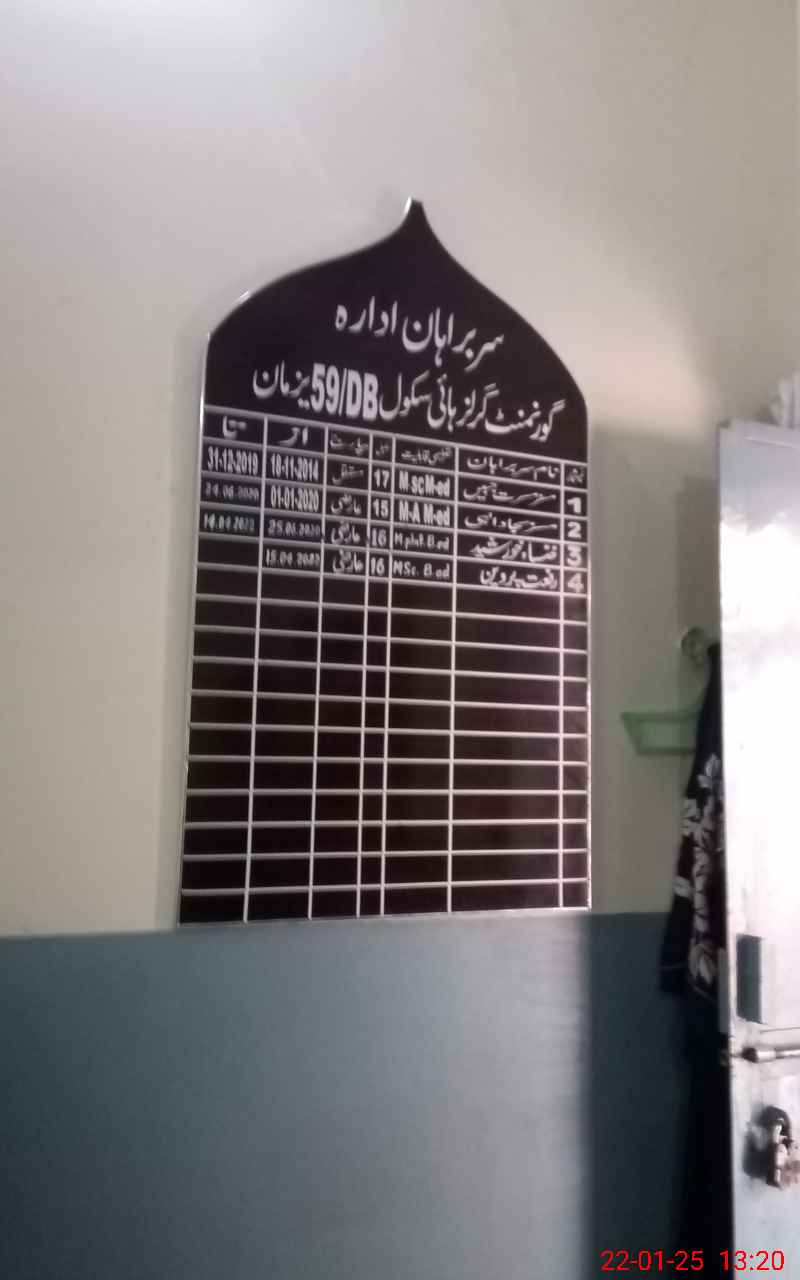 سربراہان ادارہ
گورنمنٹ گرلز ہائی سکول 59/DB یزمان
نام سربراہان تعلیمی قابلیت از تا
1 مسز مسرت جبیں M.sc M-ed 17 مستقل 18-11-2014 31-12-2019
2 مسز M-A M-ed 15 عارضی 01-01-2020 24.06.2020
3 خنساء خورشید M.phil.B.ed 16 عارضی 25.06.2020 14.04.2022
4 رفعت پروین MSc. B.ed 16 عارضی 15.04.2022
22-01-25 13:20